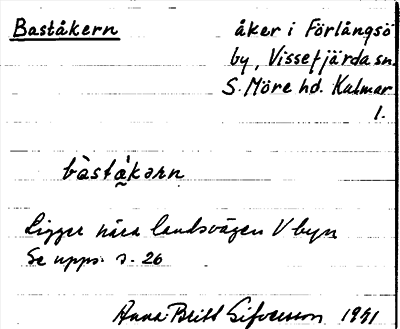 Baståkern åker i Förlångsö
by, Vissefjärda sn.
S. Möre hd. Kalmar
l.
bàstå̀kərn
Ligger nära landsvägen V byn
Se upps. s. 26
Anna-Britt Sifversson 1931